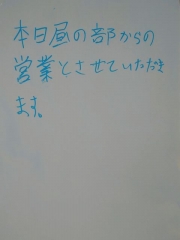 本日昼の部からの
営業とさせていただき
ます。